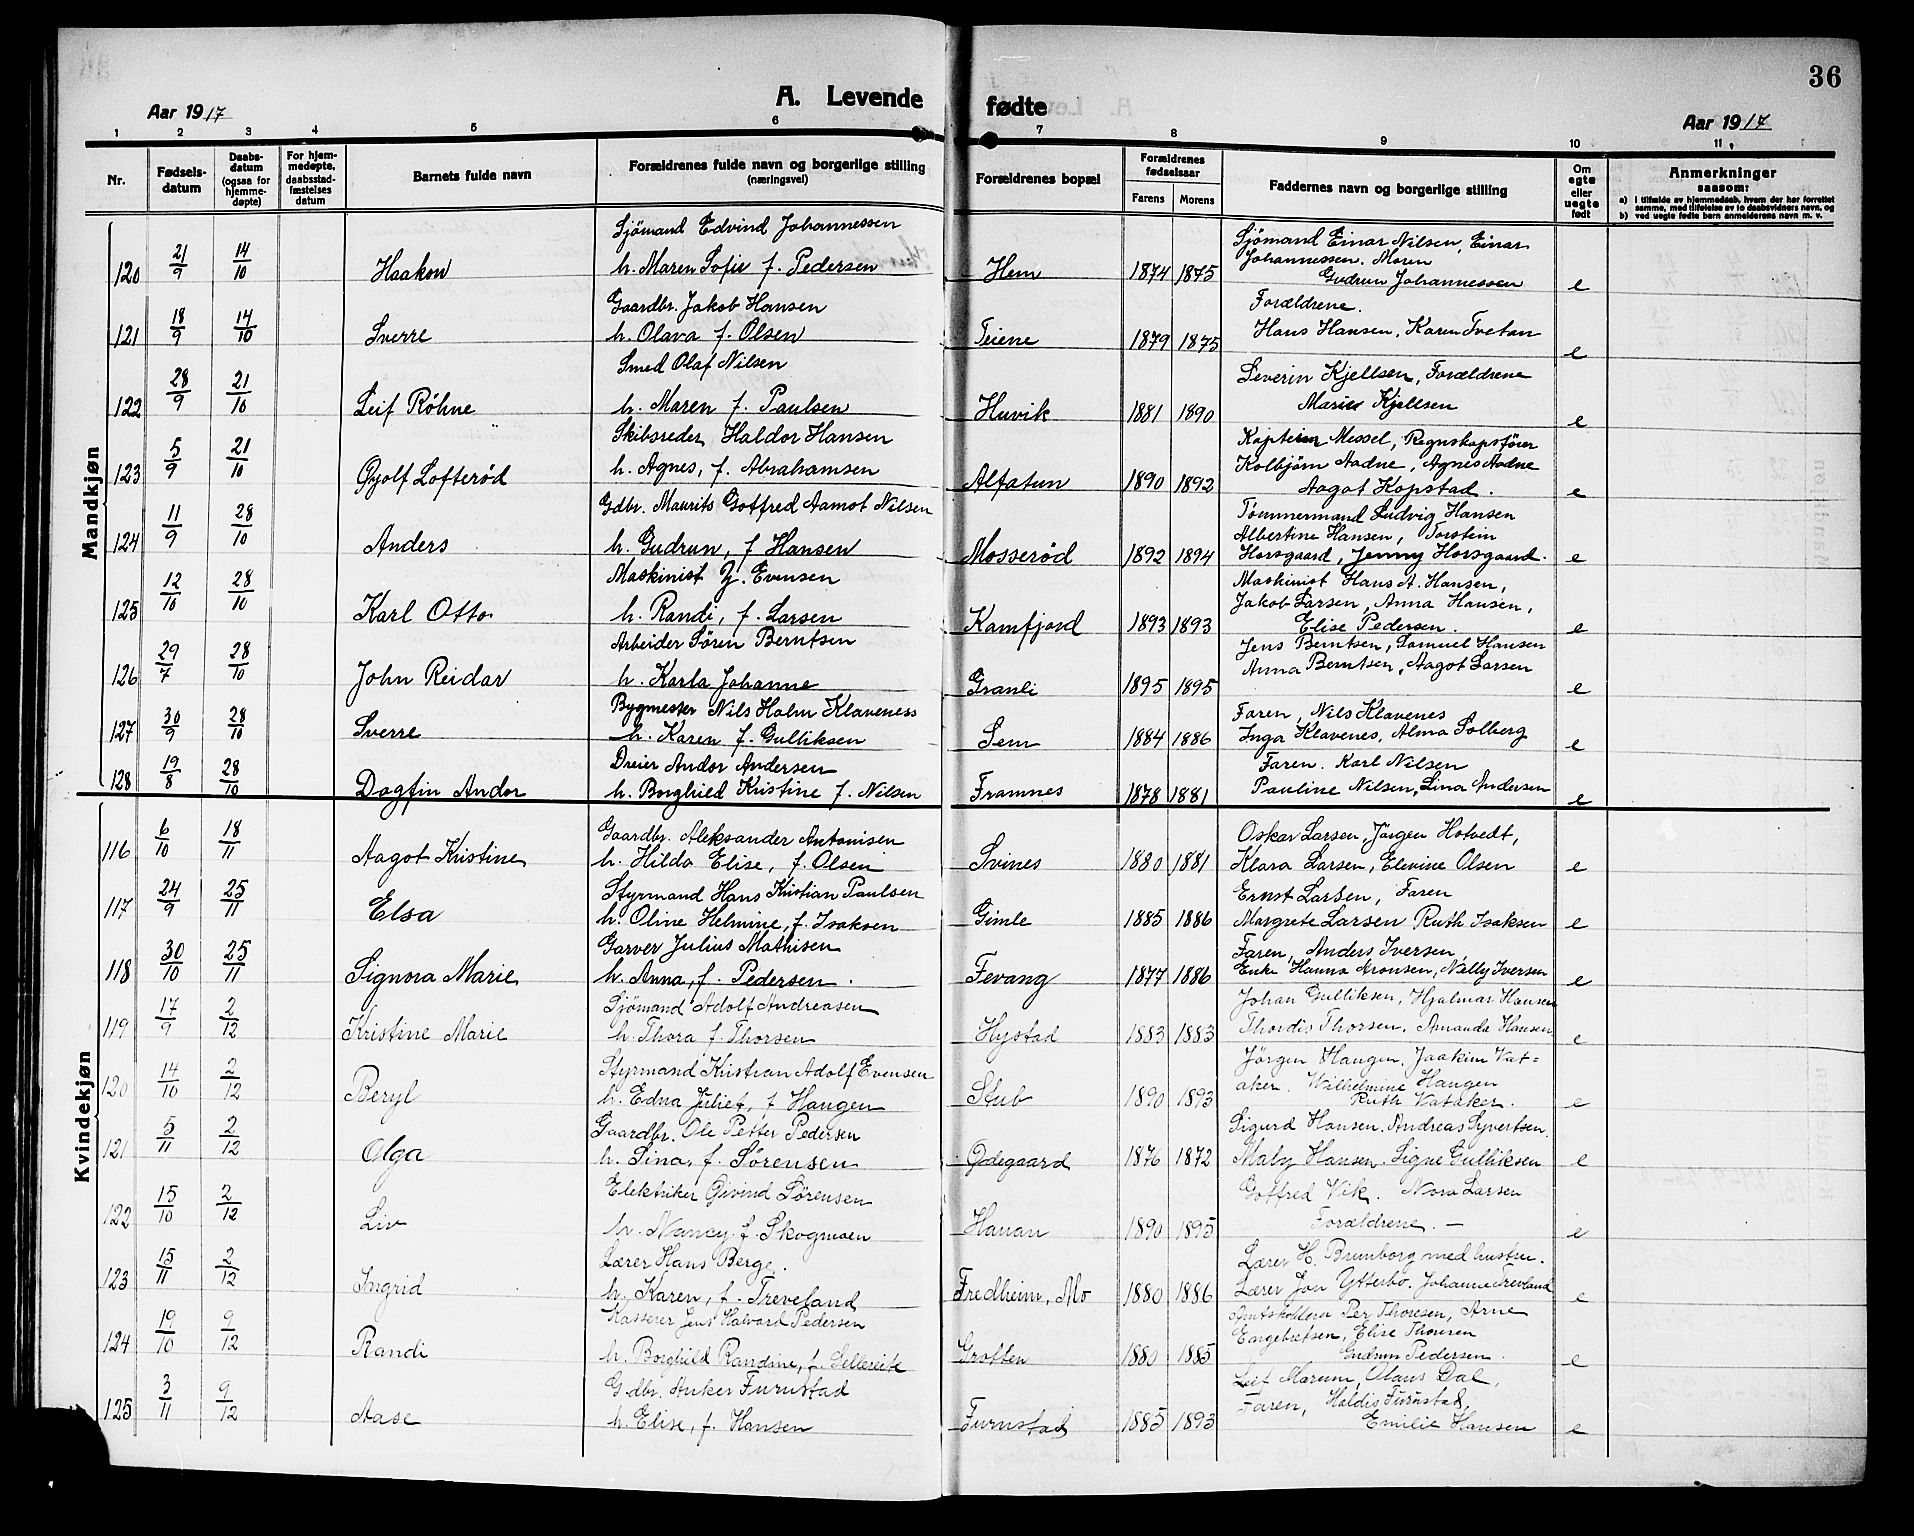 36
Aar 1917 A. Levende fødte Aar 1917
1 2 3 4 5 6 7 8 9 10 11
Nr. Fødselsdatum Daabsdatum (ogsaa for hjemmedøpte) For hjemmedøpte, daabsstadfæstelses datum Barnets fulde navn Forældrenes fulde navn og borgerlige stilling (næringsvei) Forældrenes bopæl Forældrenes fødselsaar Farens Morens Faddernes navn og borgerlige stilling Om egte eller uegte født Anmerkninger saasom:
a) i tilfælde av hjemmedaab, hvem der har forrettet samme, med tilføielse av to daabsvidners navn, og
b) ved uegte fødte barn anmelderens navn m. v.
Mandkjøn
Sjømand Edvind Johannessen Sjömand Einar Nilsen, Einar
120 21/9 14/10 Haakon h. Maren Sofie f. Pedersen Hem 1874 1875 Johannessen. Maren
Gudrun Johannessen e
Gaardbr. Jakob Hansen Forældrene.
121 18/9 14/10 Sverre h. Olava f. Olsen Teiene 1879 1875 Hans Hansen. Karen Tvetan e
Smed Olaf Nilsen Severin Kjellsen, Forældrene
122 28/9 21/10 Leif Röhne h. Maren f. Paulsen Huvik 1881 1890 Marie Kjellsen e
Skibsreder Haldor Hansen Kaptein Messel, Regnskapsfører
123 5/9 21/10 Øyolf Lofterød h. Agnes, f. Abrahamsen Alfatun 1890 1892 Kolbjørn Aadne, Agnes Aadne
Aagot Kopstad. e
Gdbr. Maurits Gotfred Aamot Nilsen Tömmermand Ludvig Hansen
124 11/9 28/10 Anders h. Gudrun, f Hansen Mosserød 1892 1894 Albertine Hansen, Torstein
Horsgaard, Jenny Horsgaard. e
Maskinist Y. Evensen Maskinist Hans A. Hansen,
125 12/10 28/10 Karl Otto h. Randi, f. Larsen Kamfjord 1893 1893 Jakob Larsen, Anna Hansen,
Elise Pedersen. e
Arbeider Søren Berntsen Jens Berntsen, Samuel Hansen
126 29/7 28/10 John Reidar h. Karla Johanne Granli 1895 1895 Anna Berntsen, Aagot Larsen e
Bygmester Nils Holm Klaveness Faren, Nils Klavenes
127 30/9 28/10 Sverre h. Karen f. Gulliksen Sem 1884 1886 Inga Klavenes, Alma Solberg e
Dreier Andor Andersen Faren. Karl Nilsen
128 19/8 28/10 Dagfin Andor h. Borghild Kristine f. Nilsen Framnes 1878 1881 Pauline Nilsen, Lina Andersen e
Kvindekjøn
Gaardbr. Aleksander Antonisen Oskar Larsen, Jörgen Hotvedt,
116 6/10 18/11 Aagot Kristine h. Hilda Elise, f. Olsen Svines 1880 1881 Klara Larsen, Elevine Olsen e
Styrmand Hans Kristian Paulsen Ernst Larsen, Faren
117 24/9 25/11 Elsa h. Oline Helmine, f. Isaksen Gimle 1885 1886 Margrete Larsen Ruth Isaksen e
Garver Julius Mathisen Faren, Anders Iversen
118 30/10 25/11 Signora Marie h. Anna, f. Pedersen. Fevang 1877 1886 Enke Hanna Aronsen, Nelly Iversen e
Sjømand Adolf Andreasen Johan Gulliksen, Hjalmar Hansen
119 17/9 2/12 Kristine Marie h. Thora f. Thorsen Hystad 1883 1883 Thordis Thorsen. Amanda Hansen e
Styrmand Kristian Adolf Evensen Jörgen Haugen. Joakim Vat=
120 14/10 2/12 Beryl h. Edna Juliet, f Haugen Stub 1890 1893 aker. Wilhelmine Haugen
Ruth Vataker. e
Gaardbr. Ole Petter Pedersen Sigurd Hansen. Andreas Syvertsen.
121 5/11 2/12 Olga h. Lina, f. Sörensen Ødegaard 1876 1872 Maly Hansen. Signe Gulliksen e
Elektriker Øivind Sørensen Gotfred Vik. Nora Larsen
122 15/10 2/12 Liv h. Nancy f. Skogmoen Havan 1890 1895 Forældrene. — e
Lærer Hans Berge. Lærer H. Brunborg med hustru.
123 15/11 2/12 Ingrid h. Karen, f. Treveland Fredheim, Mo 1880 1886 Lærer Jon Ytterbo. Johanne Trevland e
Kasserer Jens Halvard Pedersen Per Thoresen, Arne
124 19/10 9/12 Randi h. Borghild Randine, f. Sellereite Grotten 1880 1885 Engebretsen, Elise Thoresen
Gudrun Pedersen. e
Gdbr. Anker Furustad Leif Marum, Olaus Dal,
125 3/11 9/12 Aase h. Elise, f. Hansen Furustad 1885 1893 Faren, Haldis Furustad,
Emilie Hansen e